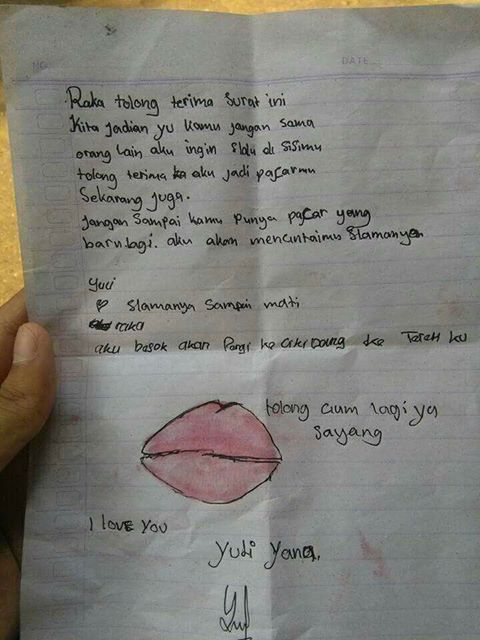 NO.
DATE
Raka tolong terima surat ini
Kita Jadian yu kamu jangan sama
orang lain aku ingin Slalu di sisimu
tolong terima aku jadi pacarmu
Sekarang Juga.
Jangan Sampai kamu punya pacar yang
baru lagi. aku akan mencintaimu Slamanyan
yuli
Slamanya Sampai mati
raka
aku besok akan Pergi ke ke Teteh ku
tolong cium lagi ya
sayang
I love you
yuli yana,